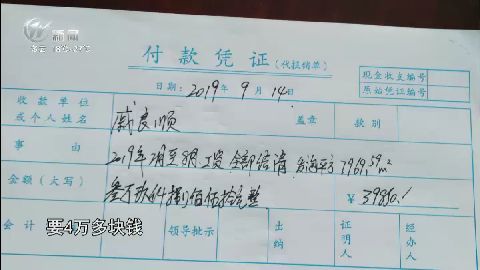 新闻
多云 18℃~27℃
付款凭证(代报销单)
现金收支编号
原始凭证编号
日期:2019年9月14日
收款单位
或个人姓名
戚良顺
盖章
款别
事由
2019年2月至8月工资全部结清
7969.59m²
金额(大写)
叁万玖仟捌佰伍拾元整
¥39850.1
会计
领导批示
出纳
证明人
经办人
要4万多块钱